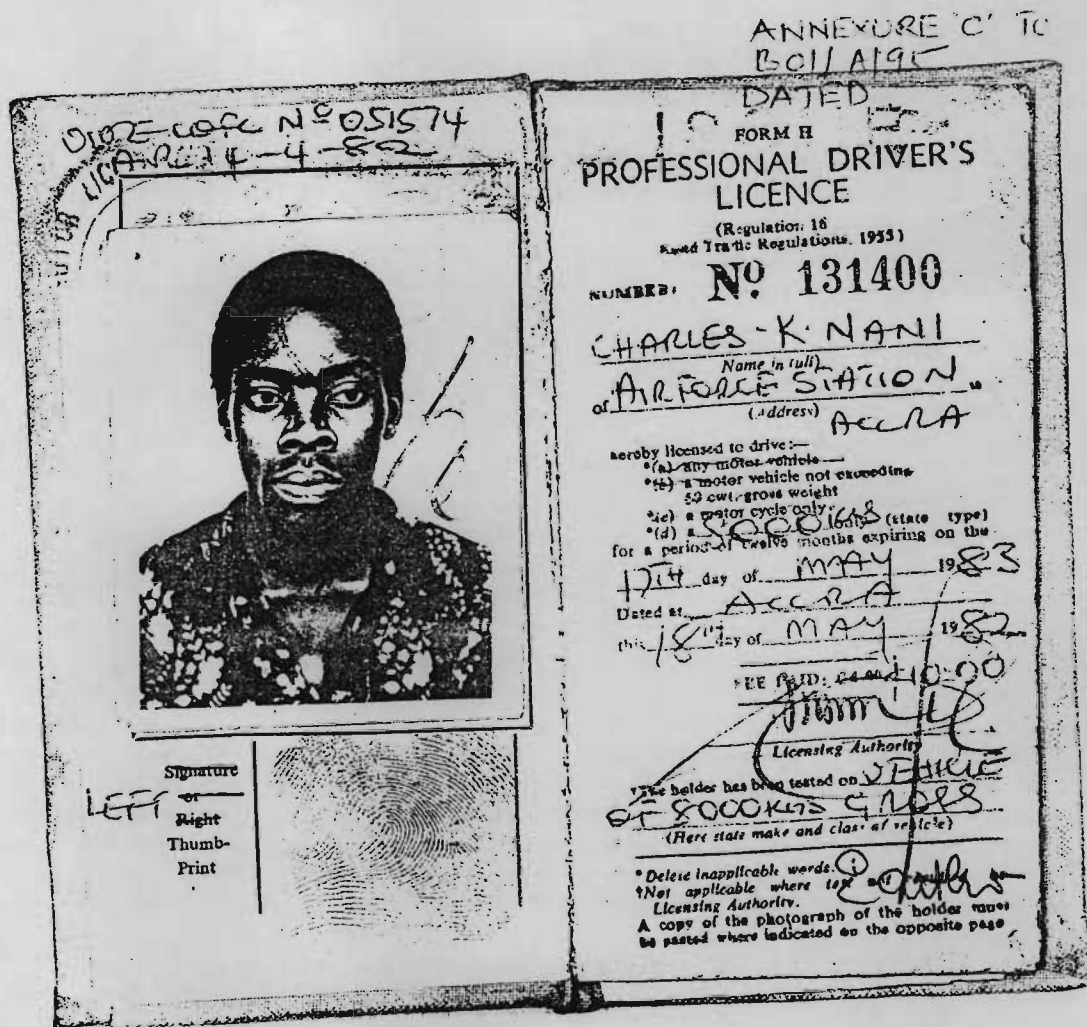 ANNEXURE 'C' TO
BO11/A/95
DATED
Nº 051574
14-4-82
FORM H
PROFESSIONAL DRIVER'S
LICENCE
(Regulation 16
Road Traffic Regulations, 1955)
NUMBER: Nº 131400
CHARLES-K-NANI
Name in full)
of AIRFORCE STATION is
(address) ACCRA
hereby licensed to drive:—
*(a) any motor vehicle—
*(b) a motor vehicle not exceeding
50 cwt. gross weight
*(c) a motor cycle only.
*(d) a 8000 KGS only (state type)
for a period of twelve months expiring on the
17TH day of MAY 1983
Dated at ACCRA
this 18TH day of MAY 1982
FEE PAID: ¢10.00
Licensing Authority
†The holder has been tested on VEHICLE
OF 8000 KGS GROSS
(Here state make and class of vehicle)
*Delete inapplicable words.
†Not applicable where
Licensing Authority.
A copy of the photograph of the holder must
be pasted where indicated on the opposite page
Signature
or
LEFT Right
Thumb-
Print